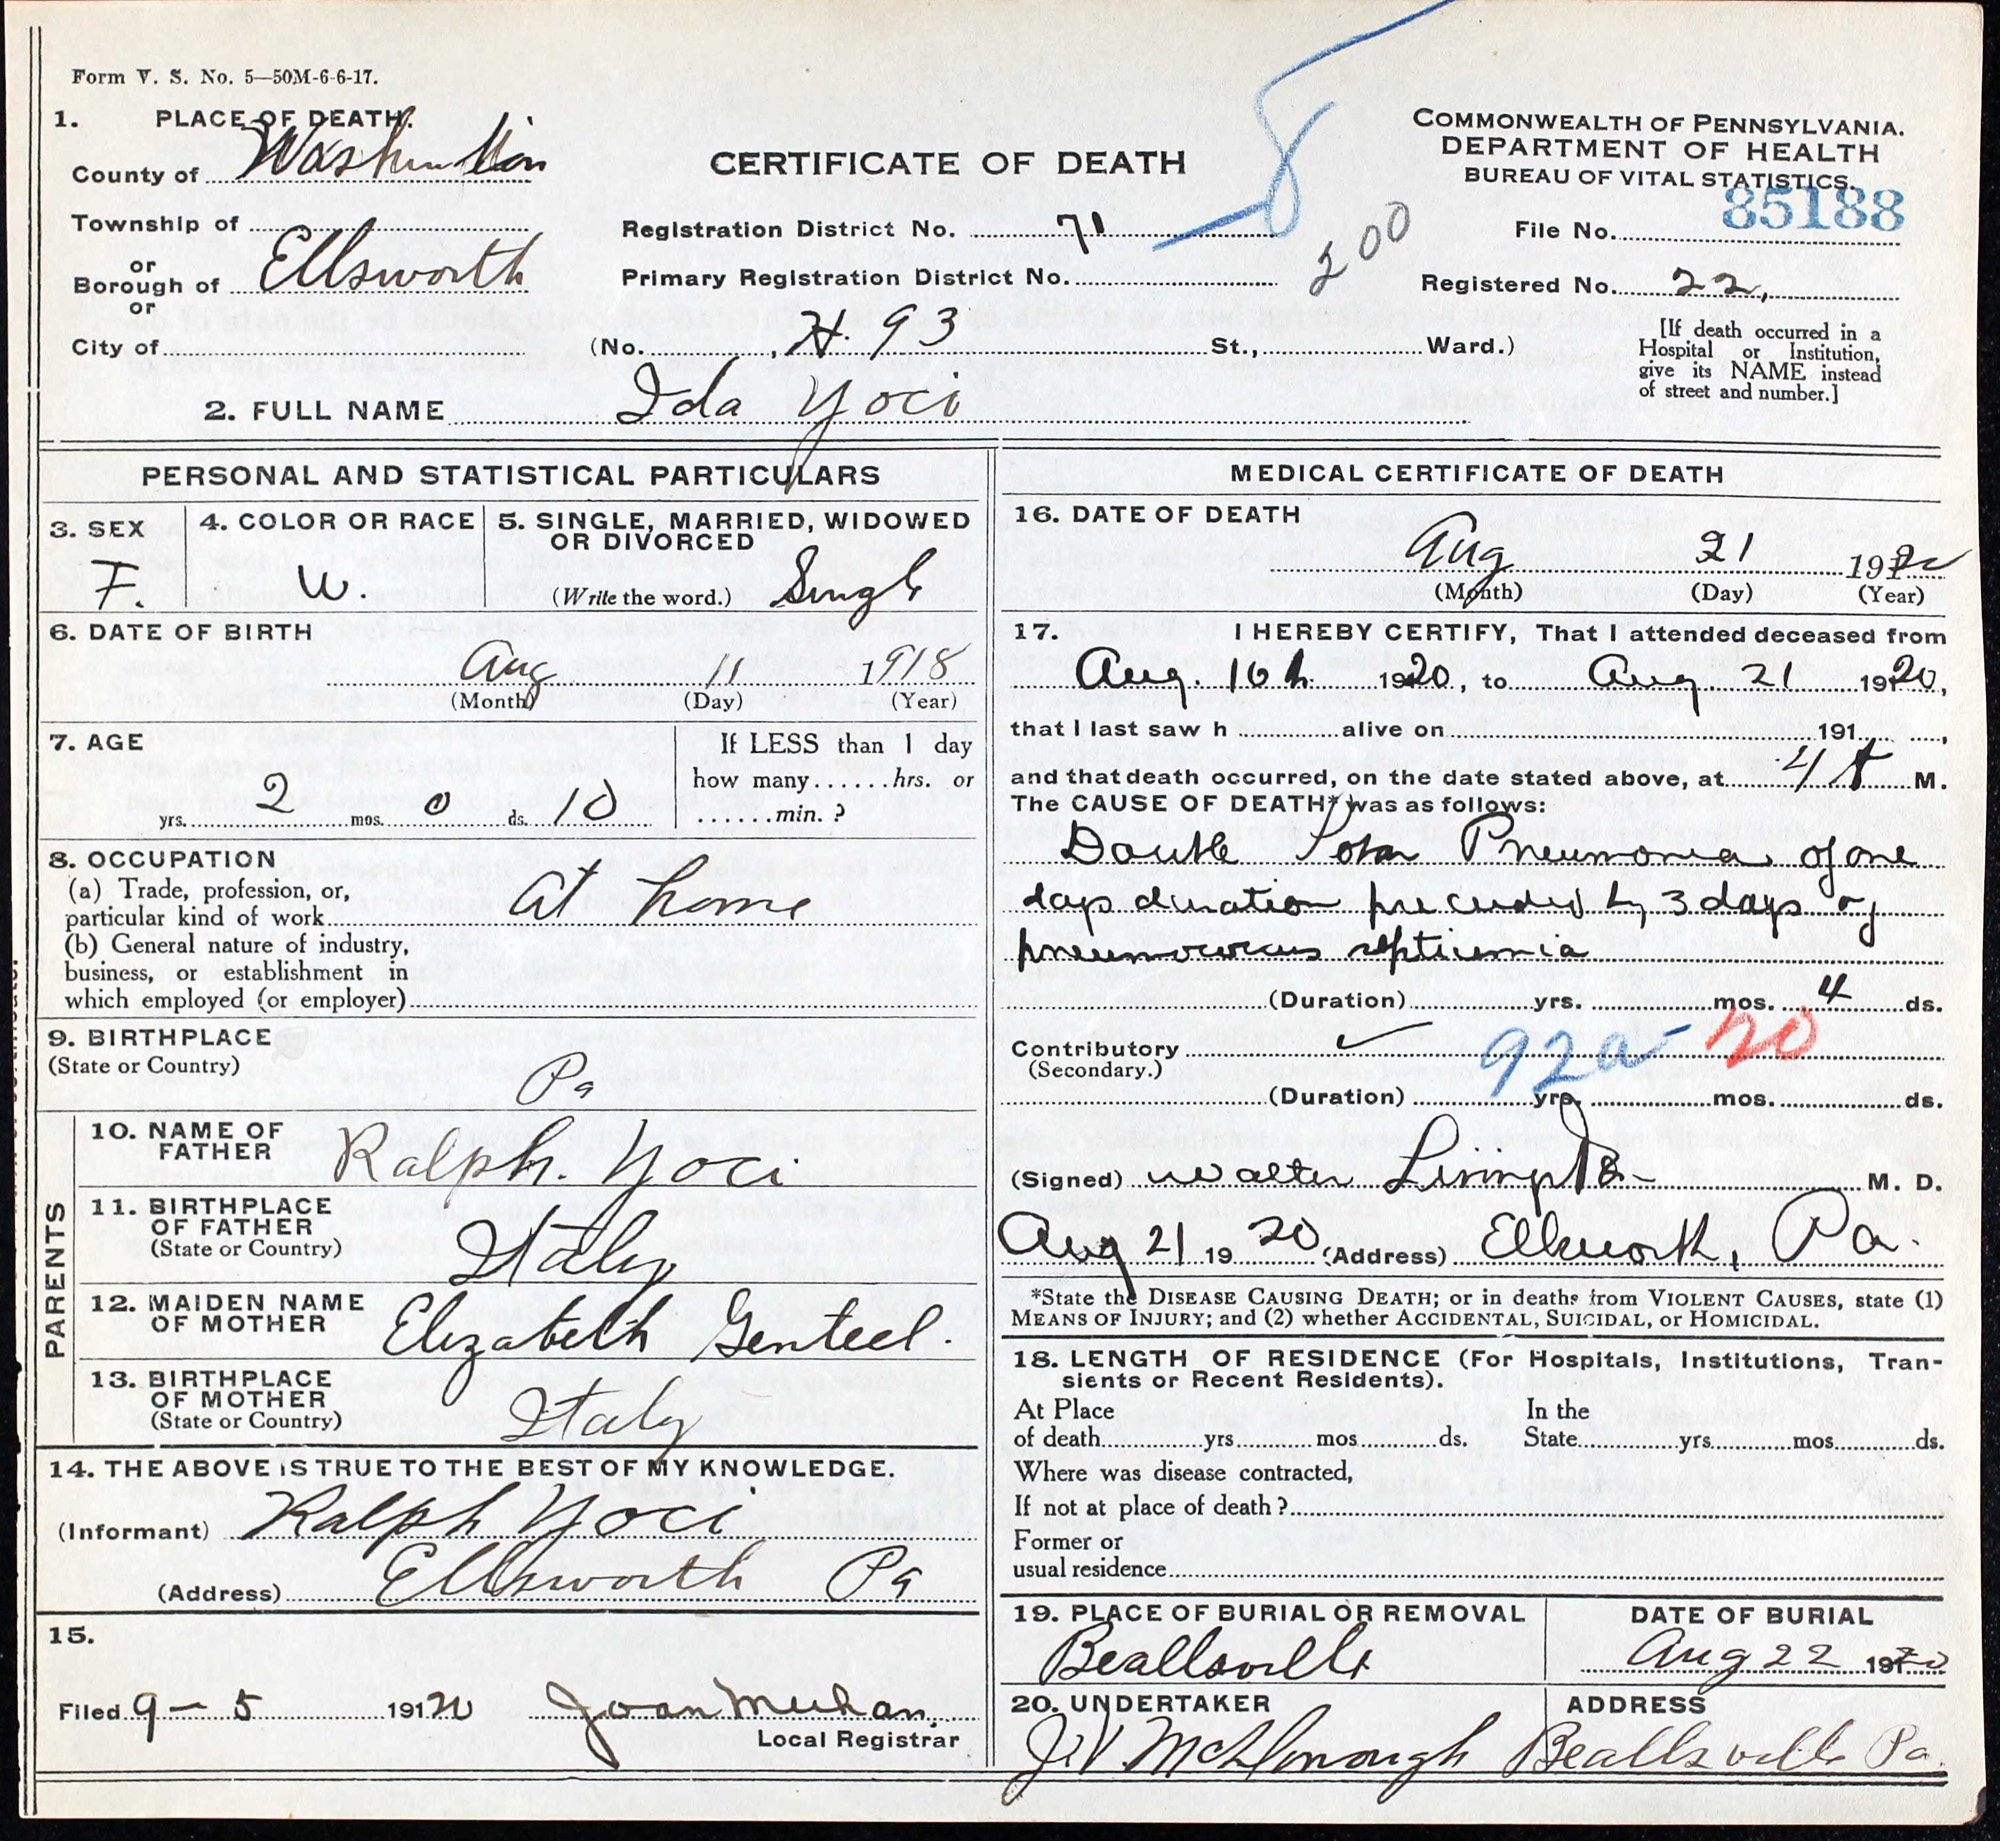 Form V. S. No. 5—50M-6-6-17.
1. PLACE OF DEATH.
County of Washington
Township of
or
Borough of Ellsworth
or
City of
CERTIFICATE OF DEATH
Registration District No. 71
Primary Registration District No.
500
(No. H. 93 St., Ward.)
COMMONWEALTH OF PENNSYLVANIA.
DEPARTMENT OF HEALTH
BUREAU OF VITAL STATISTICS.
File No. 85188
Registered No. 22,
[If death occurred in a
Hospital or Institution,
give its NAME instead
of street and number.]
2. FULL NAME Ida Yoci
PERSONAL AND STATISTICAL PARTICULARS
3. SEX
F.
4. COLOR OR RACE
W.
5. SINGLE, MARRIED, WIDOWED
OR DIVORCED
(Write the word.) Single
6. DATE OF BIRTH
Aug 11 1918
(Month) (Day) (Year)
7. AGE
yrs. 2 mos. 0 ds. 10
If LESS than 1 day
how many...... hrs. or
......min. ?
8. OCCUPATION
(a) Trade, profession, or,
particular kind of work At home
(b) General nature of industry,
business, or establishment in
which employed (or employer)
9. BIRTHPLACE
(State or Country)
Pa
PARENTS
10. NAME OF
FATHER Ralph Yoci
11. BIRTHPLACE
OF FATHER
(State or Country) Italy
12. MAIDEN NAME
OF MOTHER Elizabeth Genteel
13. BIRTHPLACE
OF MOTHER
(State or Country) Italy
14. THE ABOVE IS TRUE TO THE BEST OF MY KNOWLEDGE.
(Informant) Ralph Yoci
(Address) Ellsworth Pa
15.
Filed 9 - 5 1920 Joan Meehan
Local Registrar
MEDICAL CERTIFICATE OF DEATH
16. DATE OF DEATH
Aug 21 1920
(Month) (Day) (Year)
17. I HEREBY CERTIFY, That I attended deceased from
Aug. 16 1920, to Aug 21 1920,
that I last saw h alive on 191 ,
and that death occurred, on the date stated above, at 4 A M.
The CAUSE OF DEATH* was as follows:
Double Lobar Pneumonia of one
days duration preceded by 3 days of
pneumococcus septicemia
(Duration) yrs. mos. 4 ds.
Contributory 92a - 20
(Secondary.)
(Duration) yrs. mos. ds.
(Signed) Walter M. D.
Aug 21 1920 (Address) Ellsworth, Pa.
*State the DISEASE CAUSING DEATH; or in deaths from VIOLENT CAUSES, state (1)
MEANS OF INJURY; and (2) whether ACCIDENTAL, SUICIDAL, or HOMICIDAL.
18. LENGTH OF RESIDENCE (For Hospitals, Institutions, Tran-
sients or Recent Residents).
At Place In the
of death yrs mos ds. State yrs. mos ds.
Where was disease contracted,
If not at place of death?
Former or
usual residence
19. PLACE OF BURIAL OR REMOVAL
Beallsville
DATE OF BURIAL
Aug 22 1920
20. UNDERTAKER
J.V. McDonough
ADDRESS
Beallsville Pa.